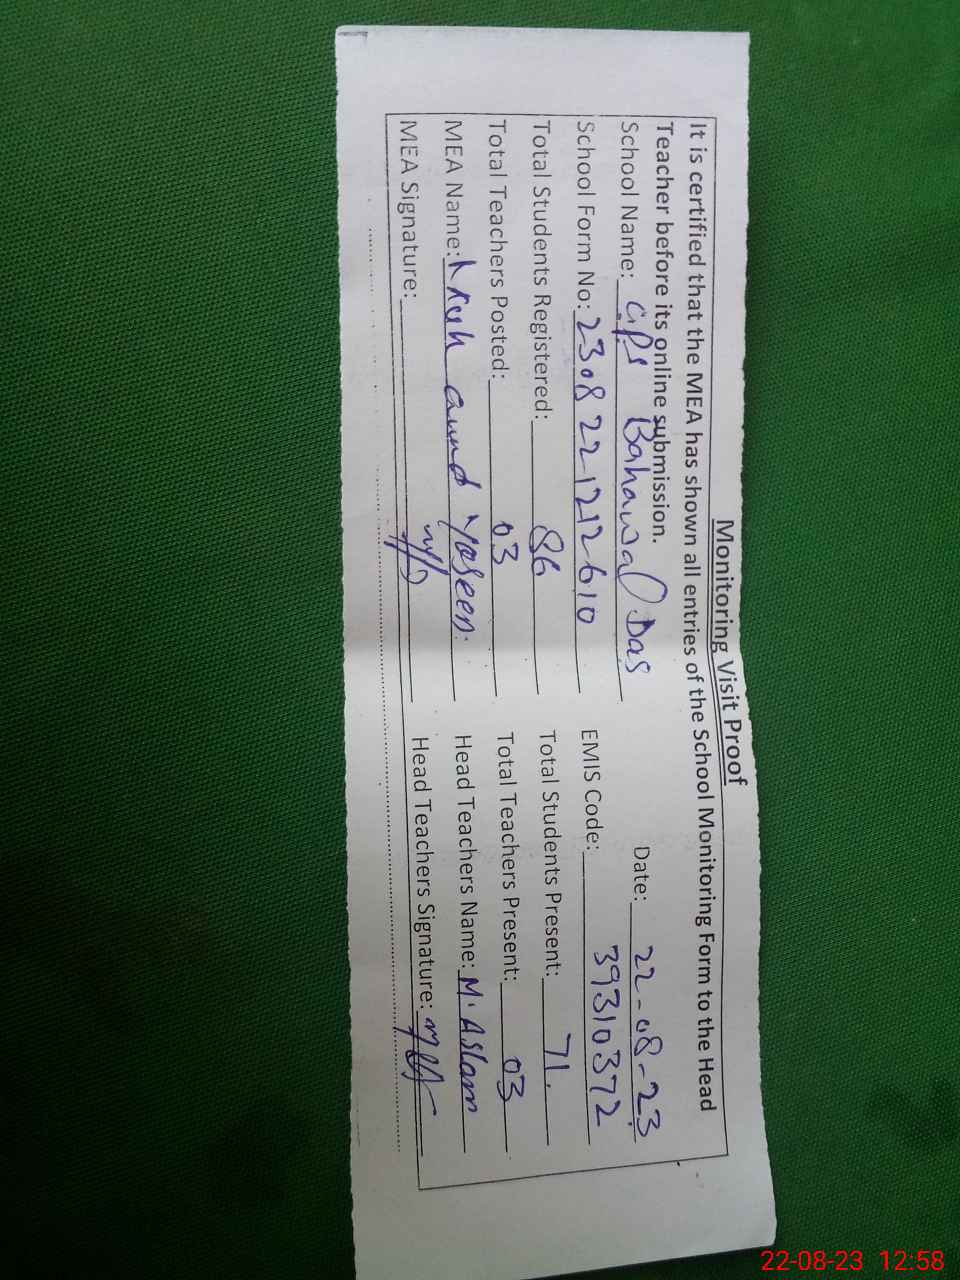 Monitoring Visit Proof
It is certified that the MEA has shown all entries of the School Monitoring Form to the Head
Teacher before its online submission.
Date: 22-08-23
School Name: GPS Bahawal Das
EMIS Code: 39310372
School Form No: 230822 1212610
Total Students Present: 71.
Total Students Registered: 86
Total Teachers Present: 03
Total Teachers Posted: 03
Head Teachers Name: M. Aslam
MEA Name: Yaseen.
Head Teachers Signature:
MEA Signature:
22-08-23 12:58